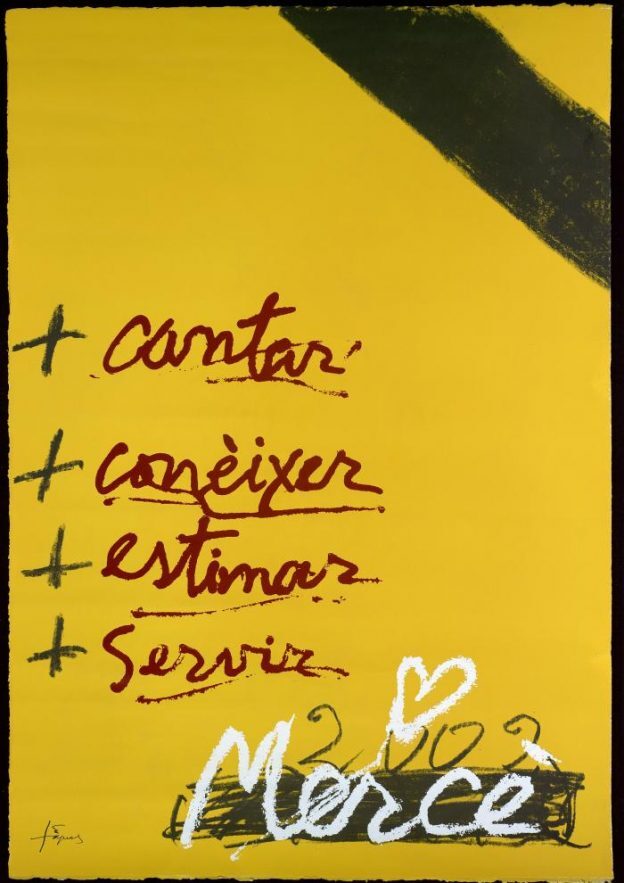 + cantar
+ conèixer
+ estimar
+ Servir
2002
Mercè
Tàpies